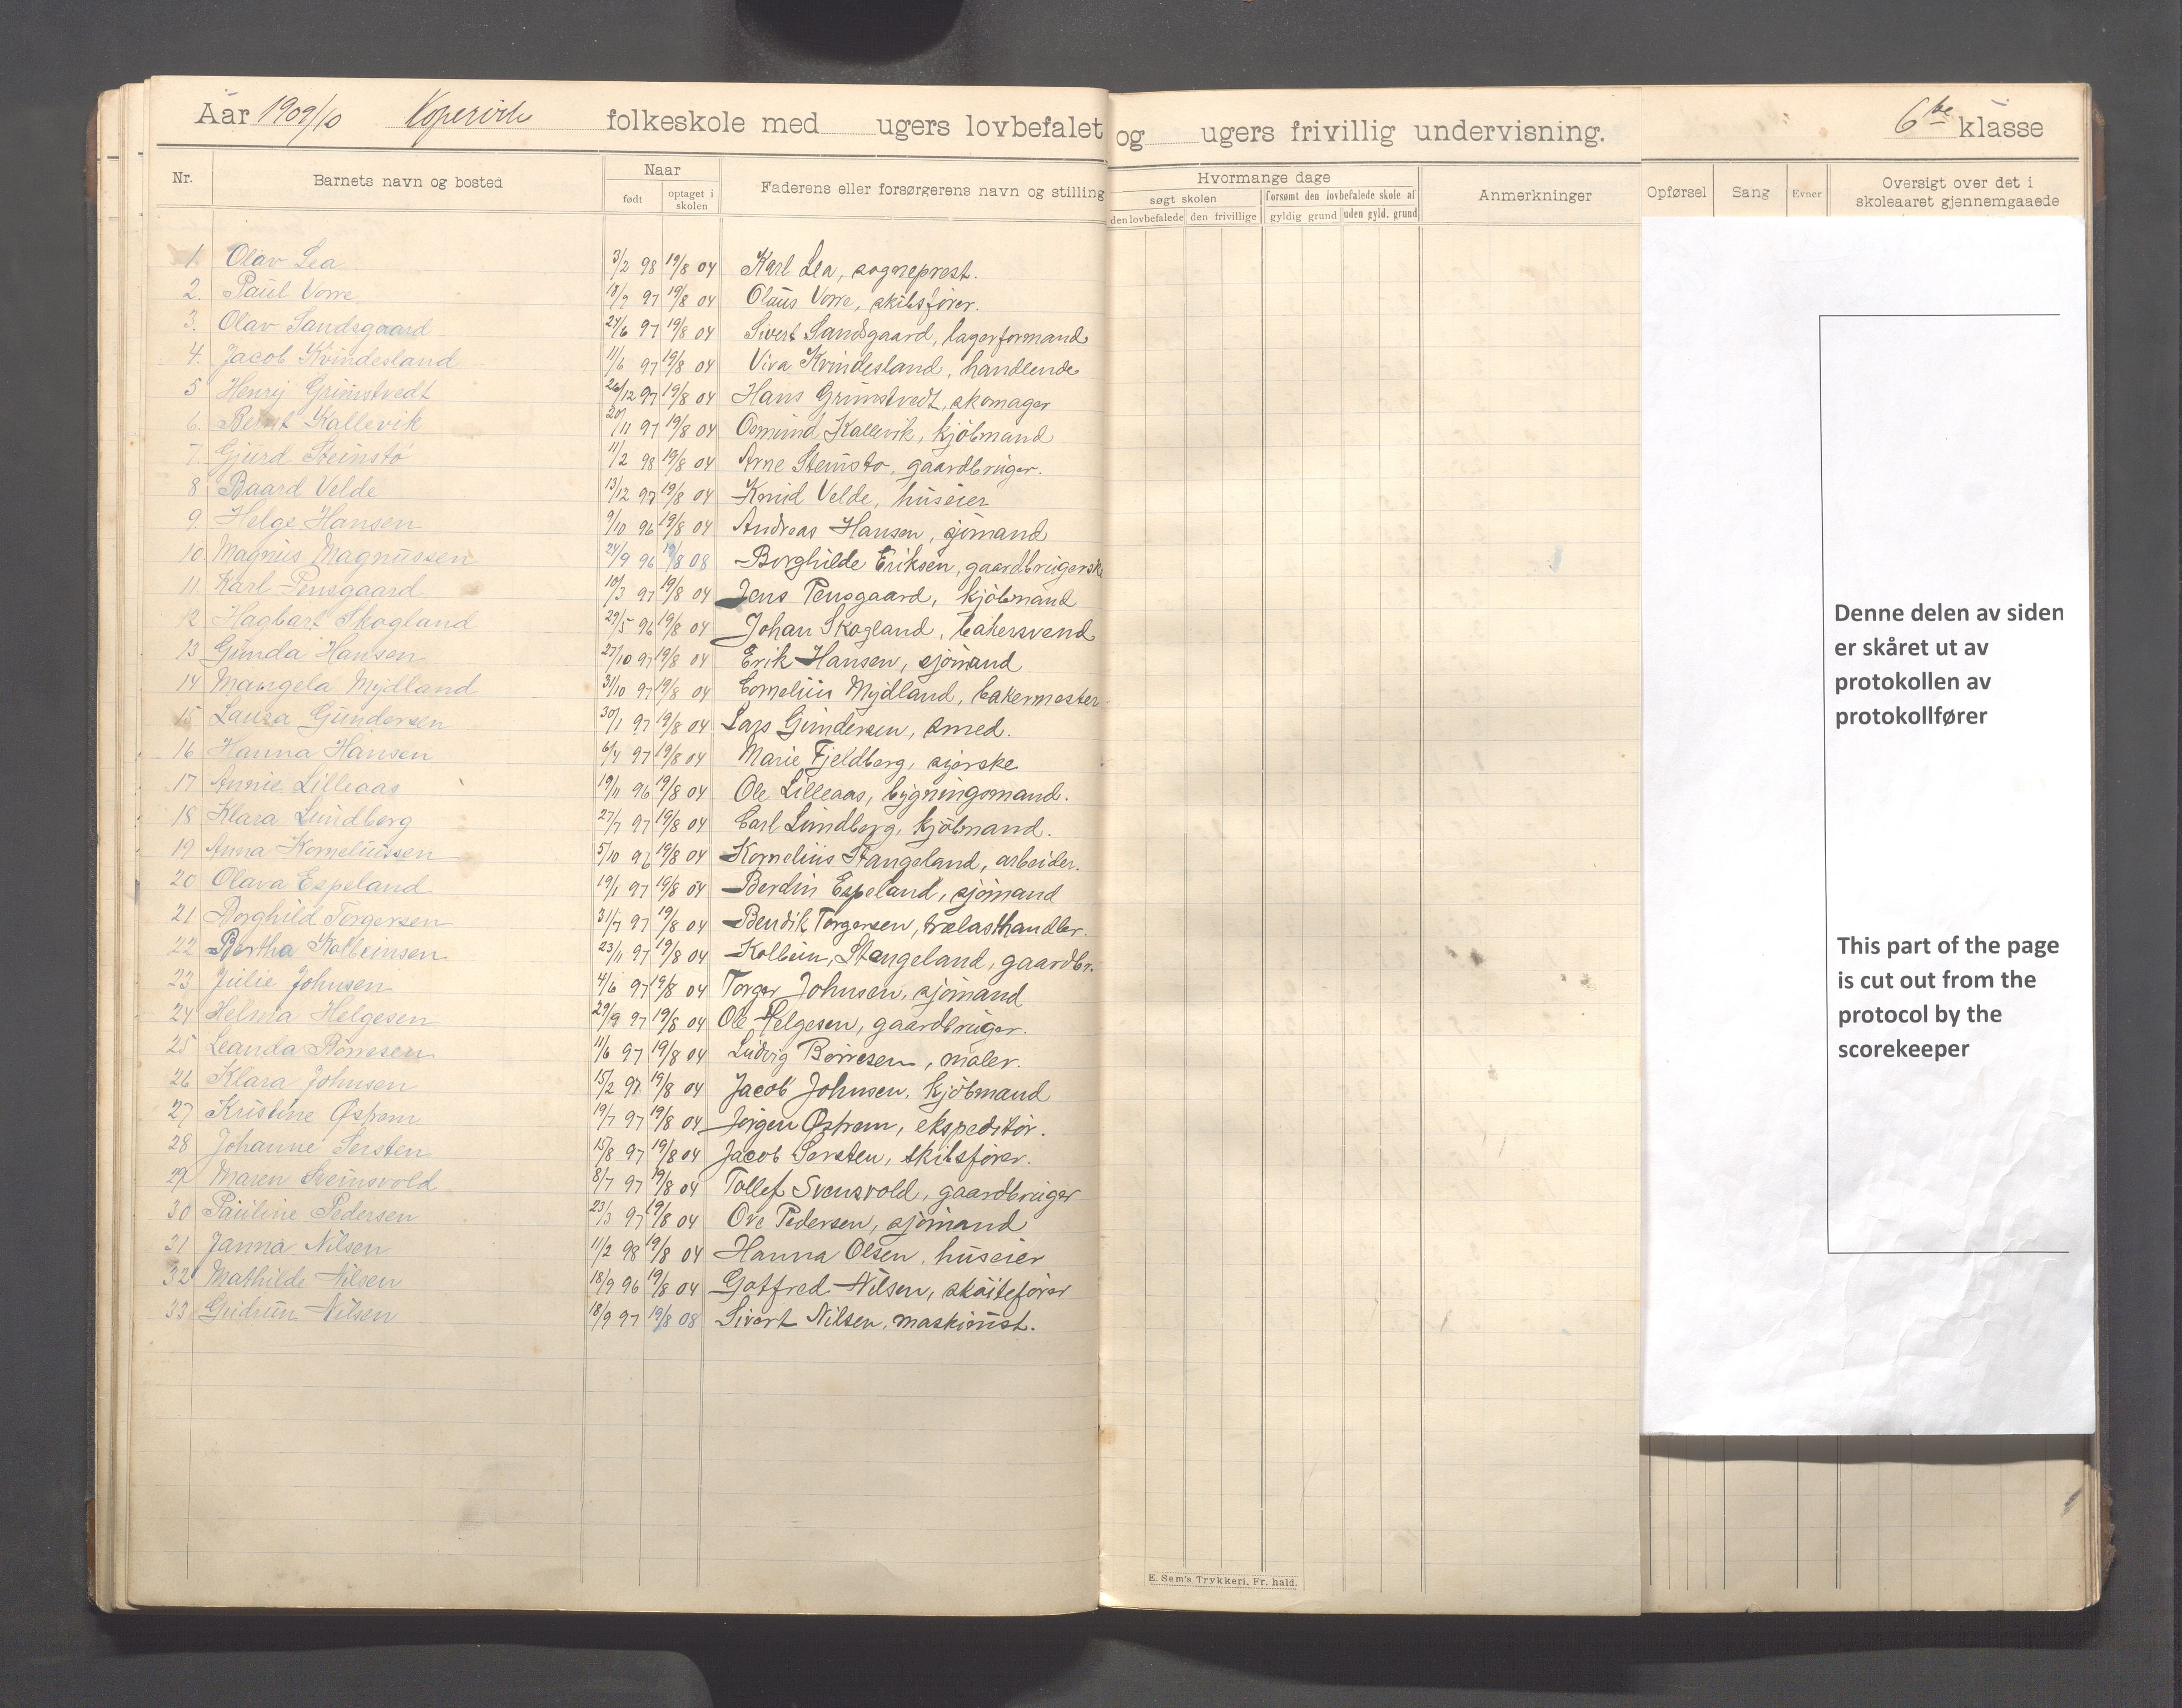 Aar 1909/10 Kopervik folkeskole med ugers lovbefalet og ugers frivillig undervisning. 6te klasse
Nr. Barnets navn og bosted Naar født optaget i skolen Faderens eller forsørgerens navn og stilling Hvormange dage søgt skolen den lovbefalede den frivillige forsømt den lovbefalede skole af gyldig grund uden gyld. grund Anmerkninger Opførsel Sang Evner Oversigt over det i skoleaaret gjennemgaaede
1. Olav Lea 3/2 98 19/8 04 Karl Lea, sogneprest.
2. Paul Vorre 18/9 97 19/8 04 Olaus Vorre, skibsfører.
3. Olav Sandsgaard 24/6 97 19/8 04 Sivert Sandsgaard, lagerformand
4. Jacob Kvindesland 11/6 97 19/8 04 Viva Kvindesland, handlende
5 Henry Grimstvedt 26/12 97 19/8 04 Hans Grimstvedt, skomager
6. Bernt Kallevik 20/11 97 19/8 04 Osmund Kallevik, kjøbmand
7. Gjurd Steinstø 11/2 98 19/8 04 Arne Steinsto, gaardbruger.
8 Baard Velde 13/12 97 19/8 04 Knud Velde, huseier
9. Helge Hansen 9/10 96 19/8 04 Andreas Hansen, sjømand
10. Magnus Magnussen 24/9 96 19/8 08 Borghilde Eriksen, gaardbrugerske
11 Karl Pensgaard 10/3 97 19/8 04 Jens Pensgaard, kjøbmand
12 Hagbart Skogland 29/5 96 19/8 04 Johan Skogland, bakersvend
13 Gunda Hansen 27/10 97 19/8 04 Erik Hansen, sjømand
14 Mangela Mydland 31/10 97 19/8 04 Cornelius Mydland, bakermester
15 Laura Gundersen 30/1 97 19/8 04 Lars Gundersen, smed.
16 Hanna Hansen 6/4 97 19/8 04 Marie Fjeldberg, syerske
17 Annie Lilleaas 19/11 96 19/8 04 Ole Lilleaas, bygningsmand.
18 Klara Lundberg 27/7 97 19/8 04 Carl Lundberg, kjøbmand.
19 Anna Korneliussen 5/10 96 19/8 04 Kornelius Stangeland, arbeider.
20 Olava Espeland 19/1 97 19/8 04 Berdin Espeland, sjømand
21 Borghild Torgersen 31/7 97 19/8 04 Bendik Torgersen, trælasthandler.
22 Bertha Kolbeinsen 23/11 97 19/8 04 Kolbein Stangeland, gaardbr.
23 Julie Johnsen 4/6 97 19/8 04 Torger Johnsen, sjømand
24 Helma Helgesen 29/9 97 19/8 04 Ole Helgesen, gaardbruger.
25 Leanda Børresen 11/6 97 19/8 04 Ludvig Børresen, maler.
26 Klara Johnsen 15/2 97 19/8 04 Jacob Johnsen, kjøbmand
27 Kristine Østrem 19/7 97 19/8 04 Jørgen Østrem, ekspeditør.
28 Johanne Sersten 15/8 97 19/8 04 Jacob Sersten, skibsfører.
29 Maren Sveinsvold 8/7 97 19/8 04 Tollef Svensvold, gaardbruger
30 Pauline Pedersen 23/3 97 19/8 04 Ove Pedersen, sjømand
31 Janna Nilsen 11/2 98 19/8 04 Hanna Olsen, huseier
32 Mathilde Nilsen 18/9 96 19/8 04 Gotfred Nilsen, skøitefører
33 Gudrun Nilsen 18/9 97 19/8 08 Sivert Nilsen, maskinist.
Denne delen av siden
er skåret ut av
protokollen av
protokollfører
This part of the page
is cut out from the
protocol by the
scorekeeper
E. Sem's Trykkeri, Fr. hald.